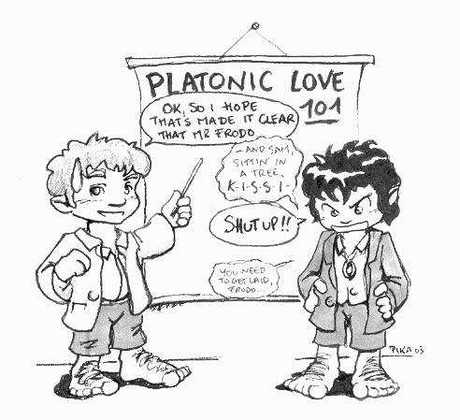 PLATONIC LOVE
101
OK, SO I HOPE
THATS MADE IT CLEAR
THAT MR FRODO
-AND SAM,
SITTIN' IN
A TREE,
K-I-S-S-I-
SHUT UP!!
YOU NEED
TO GET LAID,
FRODO.
PIKA 03